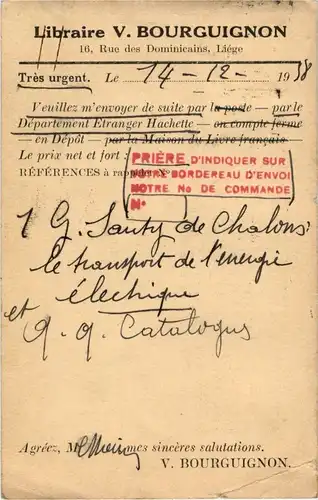 Librairie V. BOURGUIGNON
16, Rue des Dominicains, Liége
Très urgent. Le 14-12- 1938
Veuillez m'envoyer de suite par la poste — par le
Département Etranger Hachette — on compte ferme
— en Dépôt — par la Maison du Livre français.
Le prix net et fort :
RÉFÉRENCES à rappeler N°
PRIÈRE D'INDIQUER SUR
VOTRE BORDEREAU D'ENVOI
NOTRE No DE COMMANDE
N°
1 G. de Chalons
le transport de l'énergie
électrique
et q. q. Catalogus
Agréez, mes sincères salutations.
V. BOURGUIGNON.